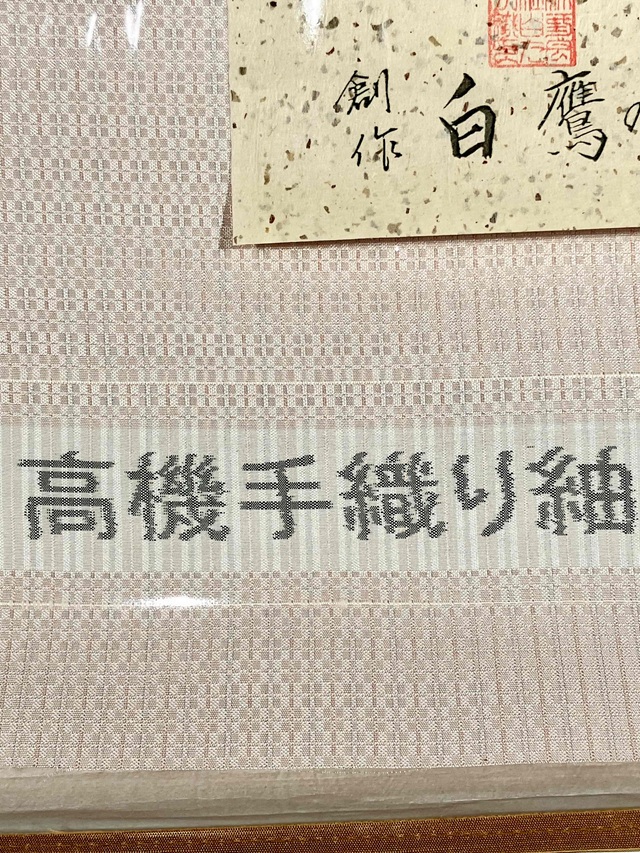 創作
白鷹
高機手織り紬